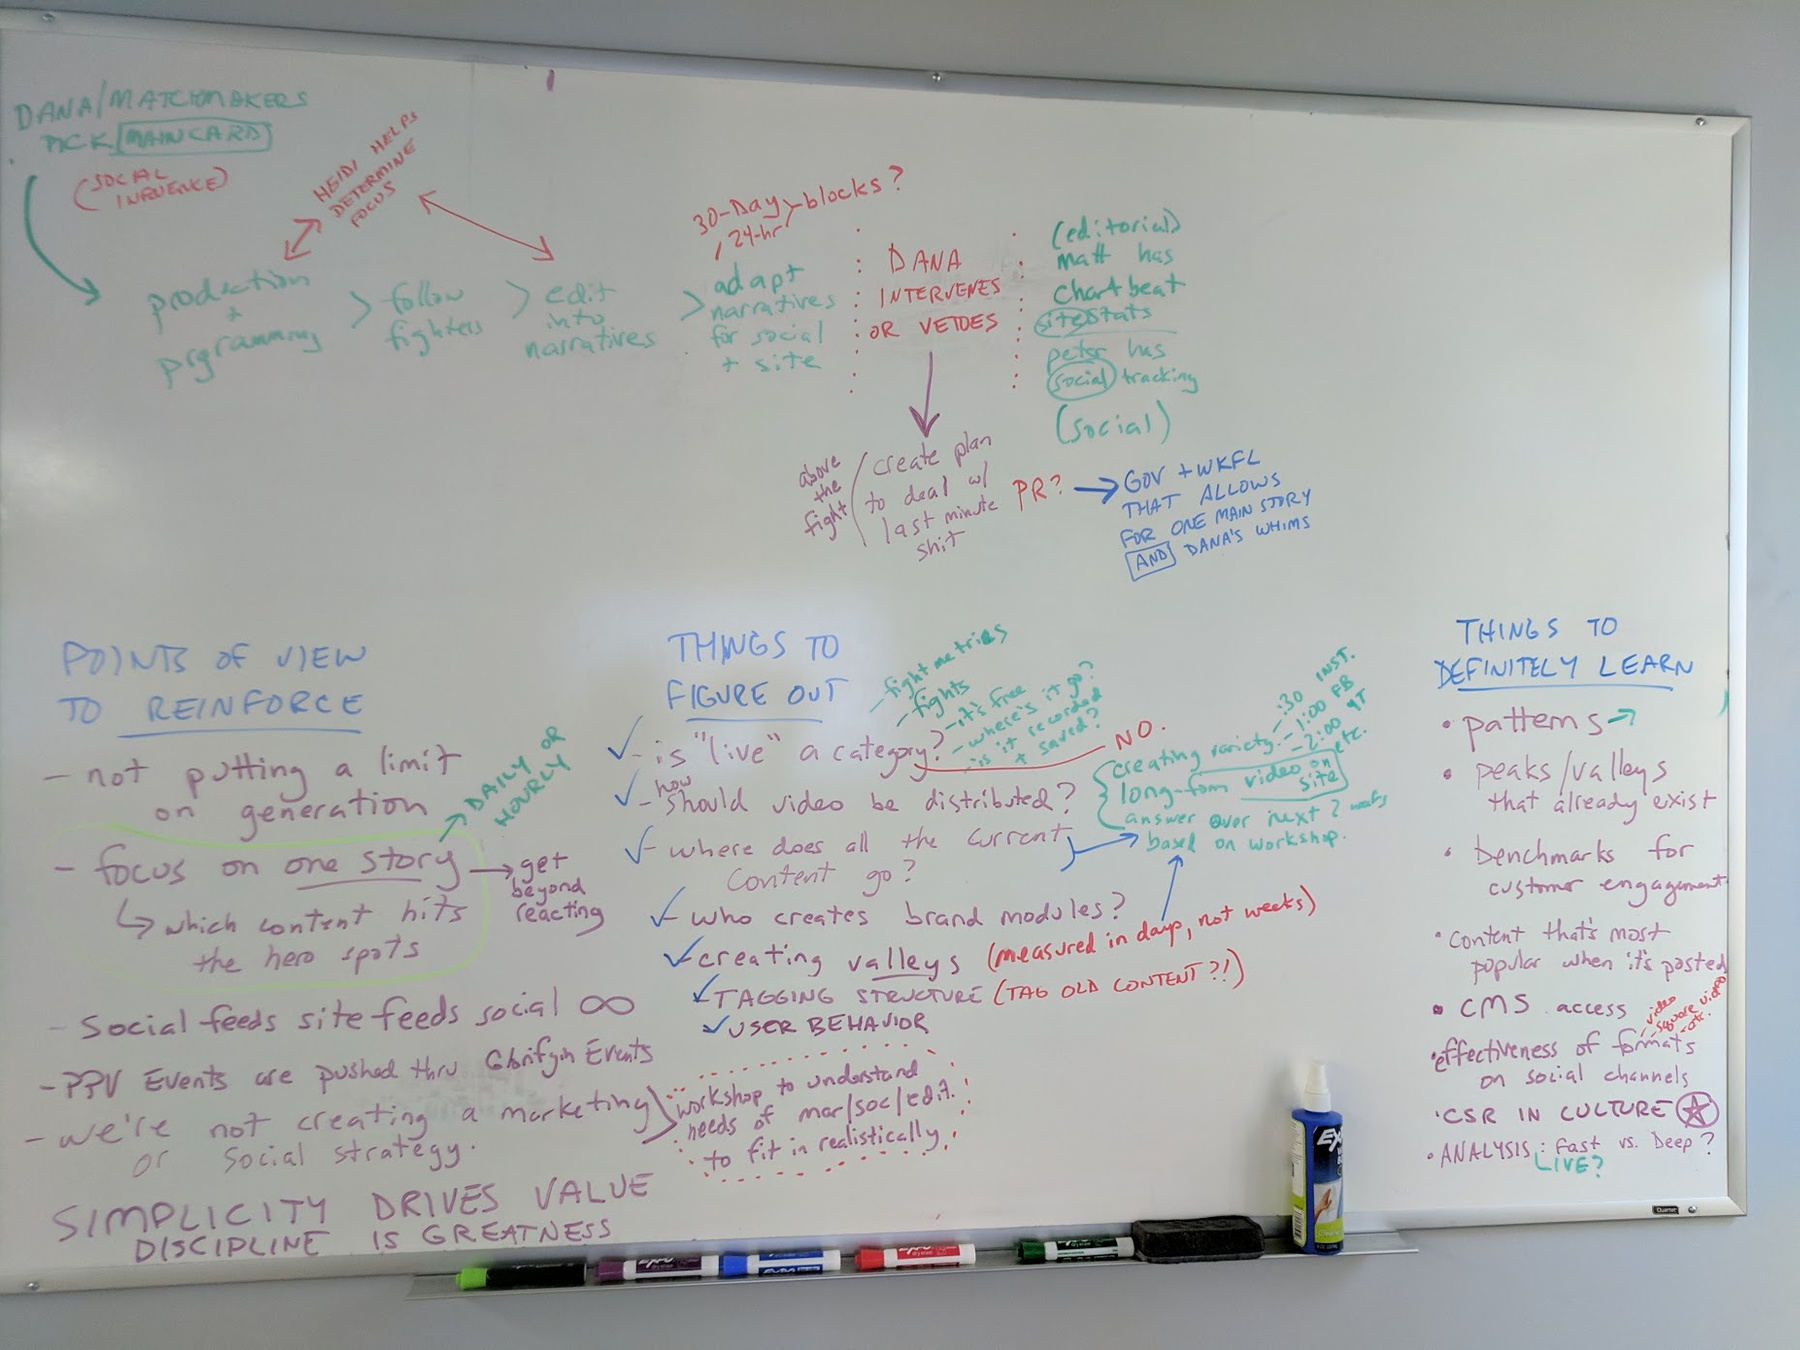 DANA/MATCHMAKERS
PICK MAINCARD
(SOCIAL
INFLUENCE)
HEIDI HELPS
DETERMINE
FOCUS
production
+
prgramming
> follow
fighters
> edit
into
narratives
30-Day
24-hr
blocks?
> adapt
narratives
for social
+ site
DANA
INTERVENES
OR VETOES
(editorial)
matt has
chartbeat
site stats
peter has
social tracking
(social)
above
the
fight
create plan
to deal w/
last minute
shit
PR?
GOV + WKFL
THAT ALLOWS
FOR ONE MAIN STORY
AND DANA'S WHIMS
POINTS OF VIEW
TO REINFORCE
- not putting a limit
on generation
DAILY OR
HOURLY
- focus on one story
which content hits
the hero spots
get
beyond
reacting
- Social feeds site feeds social ∞
- PPV Events are pushed thru Events
- we're not creating a marketing
or social strategy.
workshop to understand
needs of mar/soc/edit.
to fit in realistically
SIMPLICITY DRIVES VALUE
DISCIPLINE IS GREATNESS
THINGS TO
FIGURE OUT
- fight metrics
- fights
- it's free
- where's it go?
- is it recorded
+ saved?
- is "live" a category?
NO.
- how should video be distributed?
- where does all the current
content go?
creating variety
- :30 INST.
- 1:00 FB
- 2:00 YT
etc.
long-form video on
site
answer over next 2 weeks
based on workshop.
- who creates brand modules?
- creating valleys (measured in days, not weeks)
- TAGGING STRUCTURE (TAG OLD CONTENT?!)
- USER BEHAVIOR
THINGS TO
DEFINITELY LEARN
• patterns
• peaks/valleys
that already exist
• benchmarks for
customer engagement
• content that's most
popular when it's posted
• CMS access
- video
- square video
- etc.
• effectiveness of formats
on social channels
• CSR IN CULTURE
• ANALYSIS: Fast vs. Deep?
LIVE?
EXPO
EXPO
EXPO
EXPO
Quartet